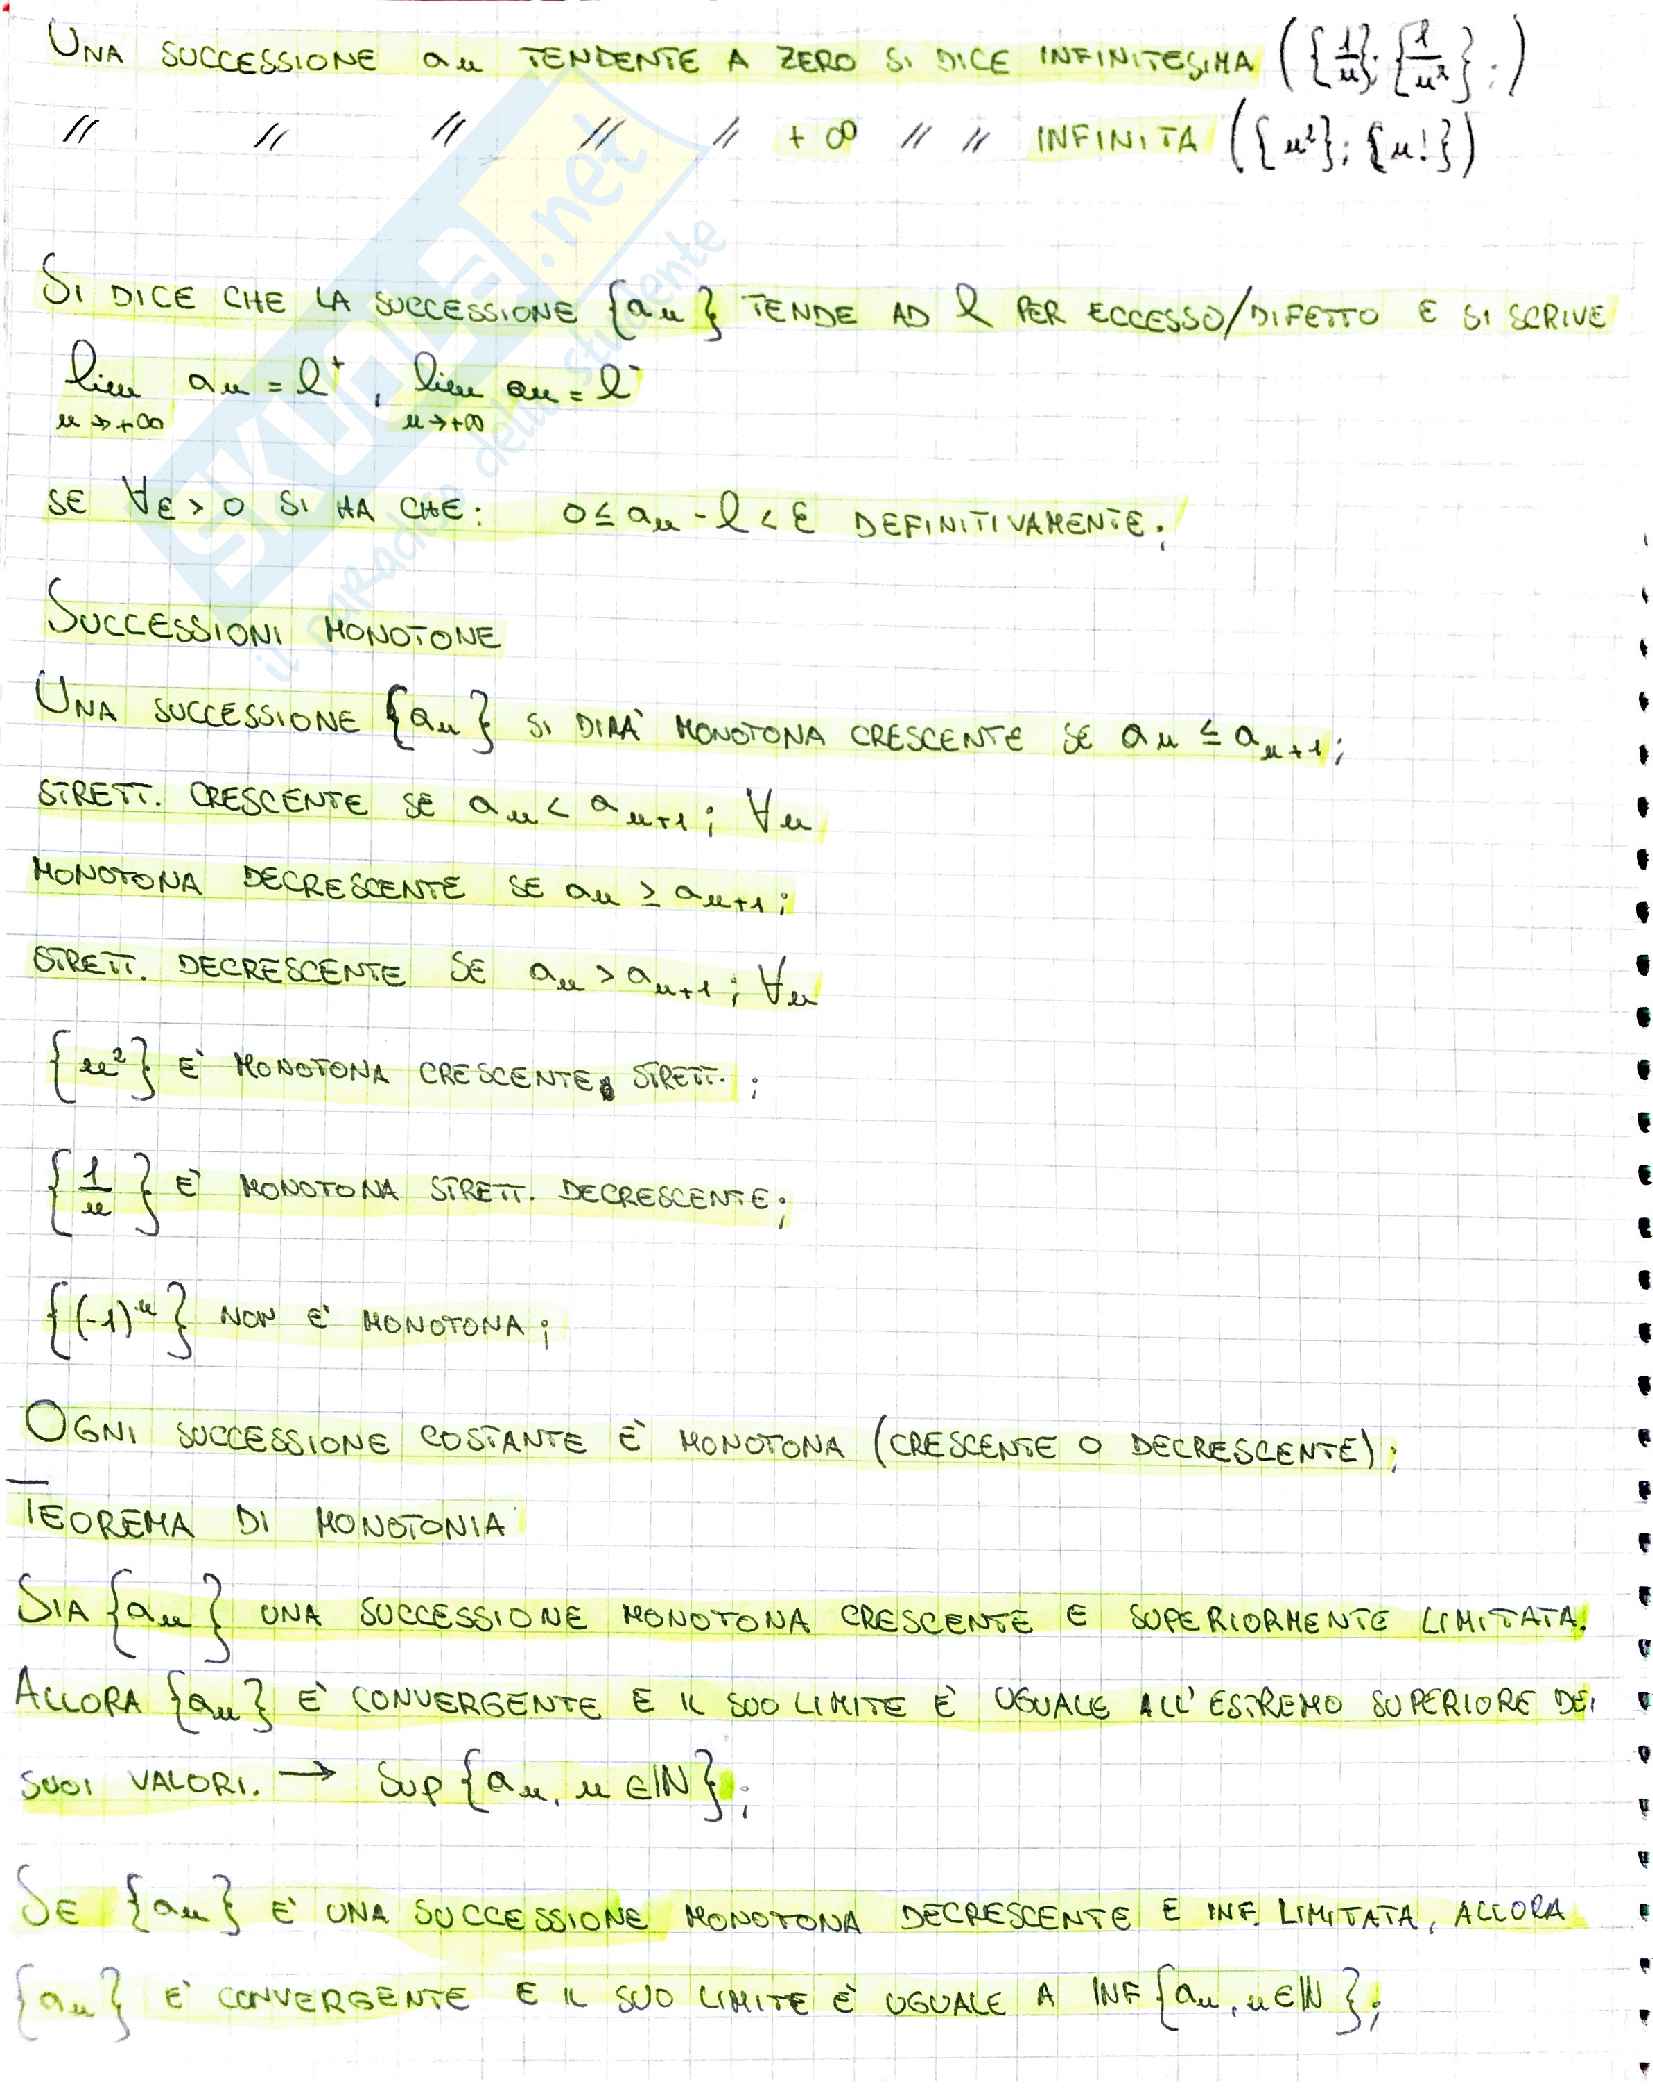 UNA SUCCESSIONE an TENDENTE A ZERO SI DICE INFINITESIMA ({1/n}; {1/n²};)
// // // // // +∞ // // INFINITA ({n²}; {n!})
SI DICE CHE LA SUCCESSIONE {an} TENDE AD l PER ECCESSO/DIFETTO E SI SCRIVE
lim an = l⁺, lim an = l⁻
n→+∞ n→+∞
SE ∀ε > 0 SI HA CHE: 0 ≤ an - l < ε DEFINITIVAMENTE;
SUCCESSIONI MONOTONE
UNA SUCCESSIONE {an} SI DIRA' MONOTONA CRESCENTE SE an ≤ an+1;
STRETT. CRESCENTE SE an < an+1; ∀n
MONOTONA DECRESCENTE SE an ≥ an+1;
STRETT. DECRESCENTE SE an > an+1; ∀n
{n²} E' MONOTONA CRESCENTE STRETT.;
{1/n} E' MONOTONA STRETT. DECRESCENTE;
{(-1)ⁿ} NON E' MONOTONA;
OGNI SUCCESSIONE COSTANTE E' MONOTONA (CRESCENTE O DECRESCENTE);
TEOREMA DI MONOTONIA
SIA {an} UNA SUCCESSIONE MONOTONA CRESCENTE E SUPERIORMENTE LIMITATA.
ALLORA {an} E' CONVERGENTE E IL SUO LIMITE E' UGUALE ALL'ESTREMO SUPERIORE DEI
SUOI VALORI. → SUP {an, n ∈ ℕ};
SE {an} E' UNA SUCCESSIONE MONOTONA DECRESCENTE E INF. LIMITATA, ALLORA
{an} E' CONVERGENTE E IL SUO LIMITE E' UGUALE A INF {an, n ∈ ℕ};
SKUOLA.net
il paradiso dello studente